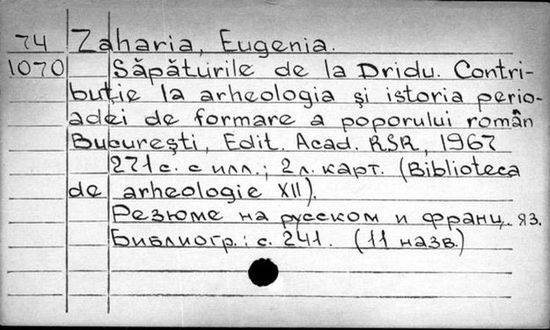 74 Zaharia, Eugenia.
1070 Săpăturile de la Dridu. Contri-
buție la arheologia și istoria perio-
adei de formare a poporului român
București, Edit. Acad. RSR, 1967
271 с. с илл.; 2 л. карт. (Biblioteca
de arheologie XII).
Резюме на русском и франц. яз.
Библиогр.: с. 241. (11 назв.)